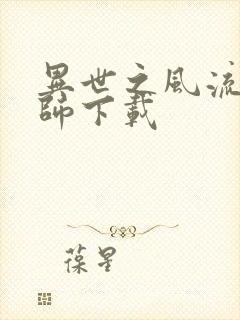 異世之風流
師下載
葆星